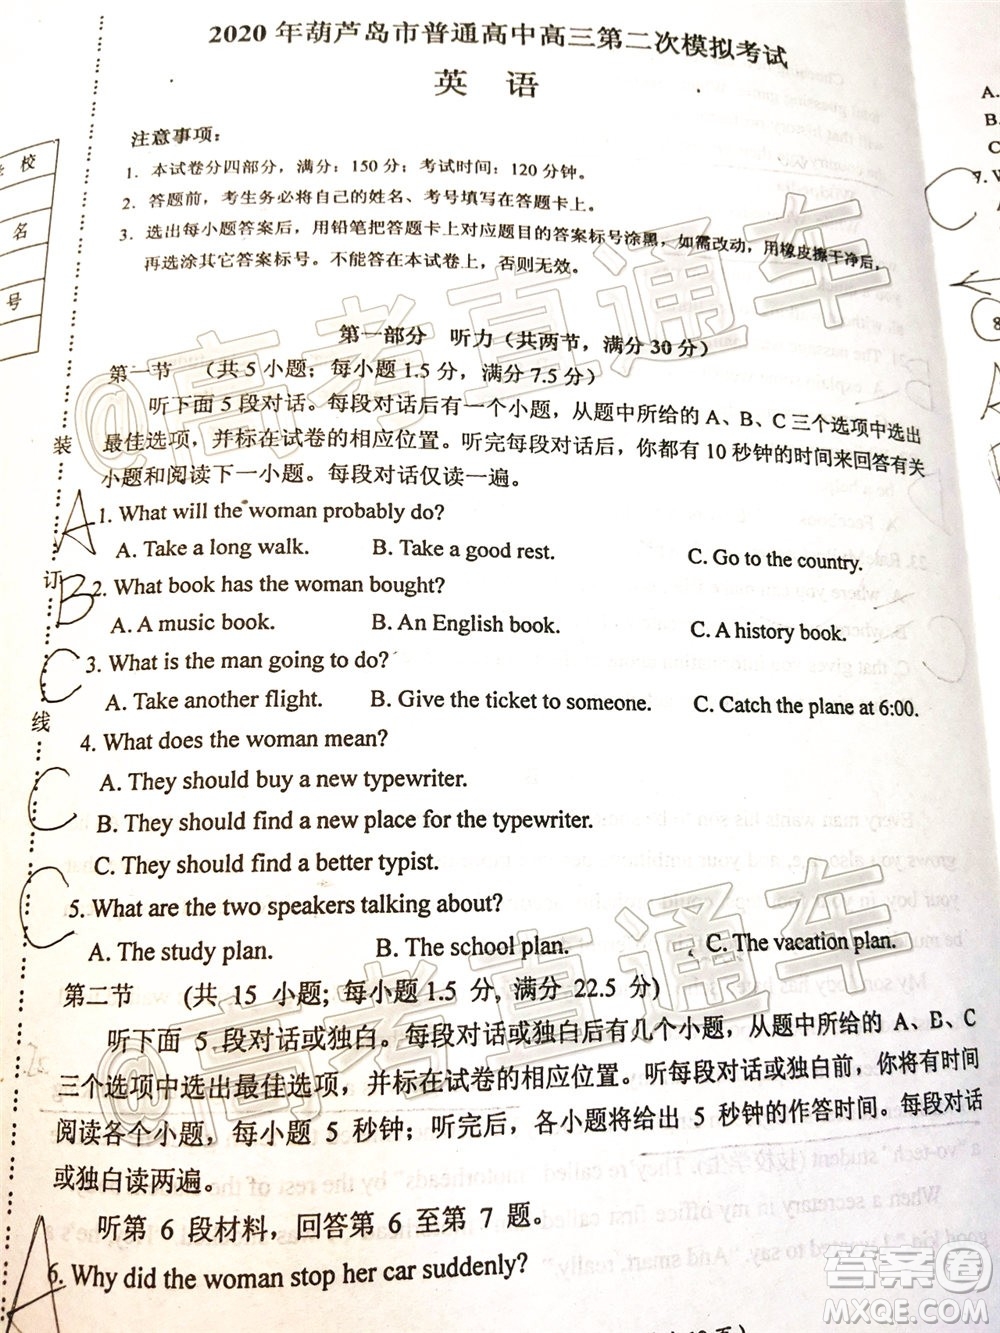 2020 年葫芦岛市普通高中高三第二次模拟考试
英 语
注意事项：
1. 本试卷分四部分，满分：150 分；考试时间：120 分钟。
2. 答题前，考生务必将自己的姓名、考号填写在答题卡上。
3. 选出每小题答案后，用铅笔把答题卡上对应题目的答案标号涂黑，如需改动，用橡皮擦干净后，
再选涂其它答案标号。不能答在本试卷上，否则无效。
校
名
号
装
订
线
第一部分 听力（共两节，满分 30 分）
第一节 （共 5 小题；每小题 1.5 分，满分 7.5 分）
听下面 5 段对话。每段对话后有一个小题，从题中所给的 A、B、C 三个选项中选出
最佳选项，并标在试卷的相应位置。听完每段对话后，你都有 10 秒钟的时间来回答有关
小题和阅读下一小题。每段对话仅读一遍。
A 1. What will the woman probably do?
A. Take a long walk. B. Take a good rest. C. Go to the country.
B 2. What book has the woman bought?
A. A music book. B. An English book. C. A history book.
C 3. What is the man going to do?
A. Take another flight. B. Give the ticket to someone. C. Catch the plane at 6:00.
4. What does the woman mean?
A. They should buy a new typewriter.
C B. They should find a new place for the typewriter.
C. They should find a better typist.
C 5. What are the two speakers talking about?
A. The study plan. B. The school plan. C. The vacation plan.
第二节 (共 15 小题; 每小题 1.5 分, 满分 22.5 分)
听下面 5 段对话或独白。每段对话或独白后有几个小题，从题中所给的 A、B、C
三个选项中选出最佳选项，并标在试卷的相应位置。听每段对话或独白前，你将有时间
阅读各个小题，每小题 5 秒钟；听完后，各小题将给出 5 秒钟的作答时间。每段对话
或独白读两遍。
听第 6 段材料，回答第 6 至第 7 题。
A 6. Why did the woman stop her car suddenly?
A.
B.
C
C 7.
8
@高考直通车
@高考直通车
答案圈
MXQE.COM